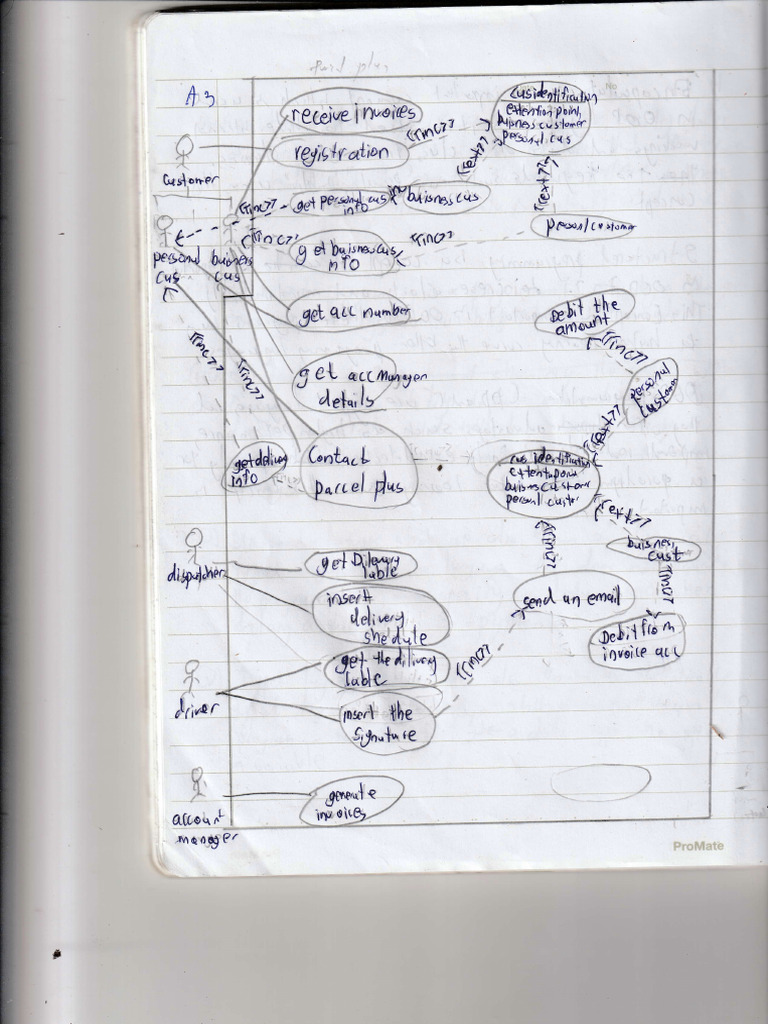 A3
receive invoices
registration
<<inc>>
cus identification
extention point
buisness customer
personal cus
customer
<<ext>>
<<ext>>
<<inc>>
get personal cus
info
inc
buisness cus
<<inc>>
get buisness cus
info
<<inc>>
personal customer
personal
cus
buisness
cus
get acc number
Debit the
amount
<<inc>>
<<inc>>
<<inc>>
get acc Manager
details
personal
customer
<<ext>>
get delivery
info
Contact
parcel plus
cus identification
extent point
buisnes customer
personal custer
<<ext>>
buisness
cust
dispatcher
get Dilevary
table
<<inc>>
<<inc>>
insert
delivery
shedule
send an email
Debit from
invoice acc
get the dilivery
table
<<inc>>
driver
insert the
signature
account
manager
generate
invoices
ProMate